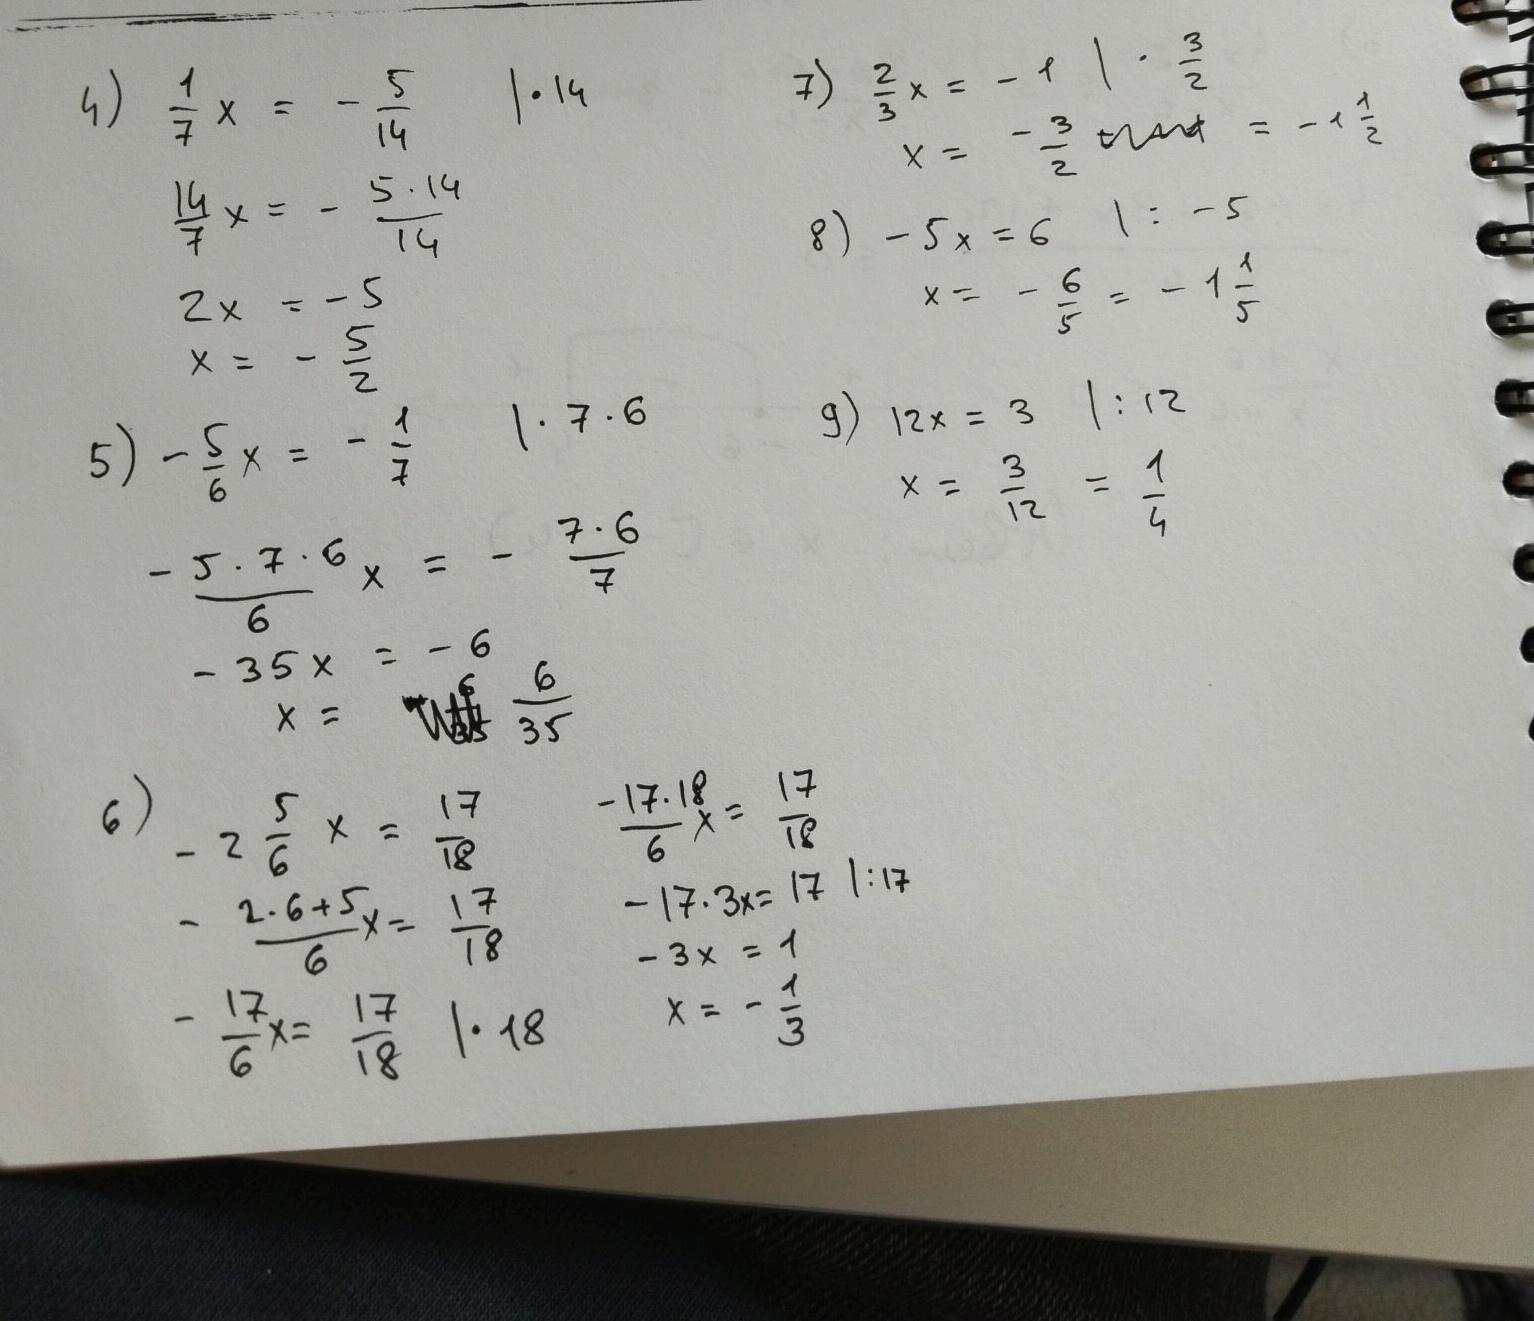 4) 1/7 x = - 5/14 |·14
14/7 x = - 5·14/14
2x = -5
x = - 5/2
5) - 5/6 x = - 1/7 |·7·6
- 5·7·6/6 x = - 7·6/7
-35x = -6
x = 6/35
6) -2 5/6 x = 17/18
- 2·6+5/6 x = 17/18
- 17/6 x = 17/18 |·18
-17·18/6 x = 17/18
-17·3x = 17 |:17
-3x = 1
x = - 1/3
7) 2/3 x = -1 |· 3/2
x = - 3/2 = -1 1/2
8) -5x = 6 |: -5
x = - 6/5 = -1 1/5
9) 12x = 3 |:12
x = 3/12 = 1/4